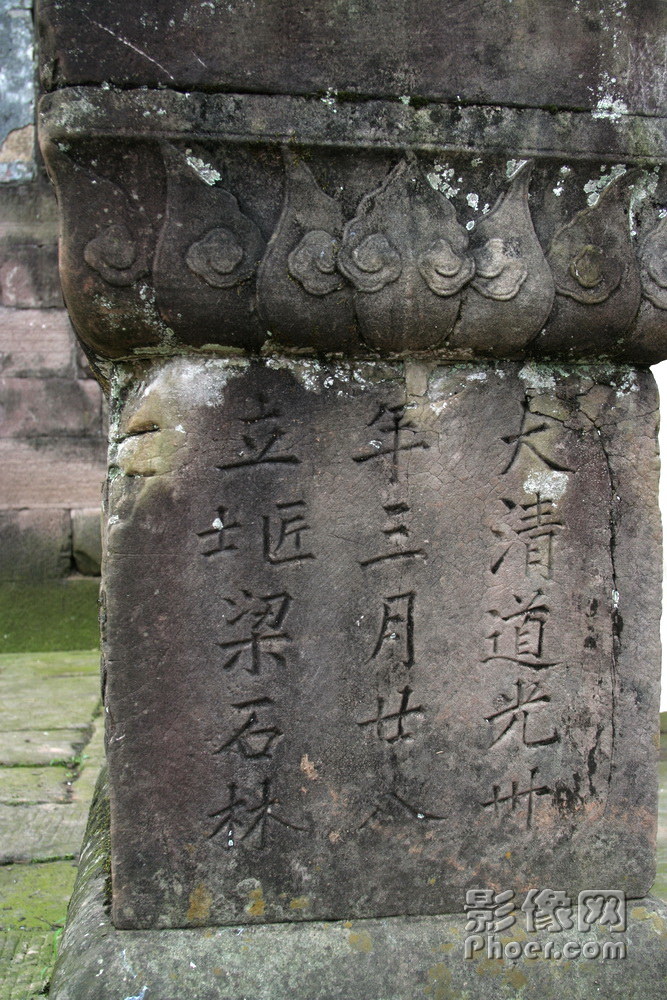 大清道光卅
年三月廿八
立
匠士
梁石林
影像网
Phoer.com